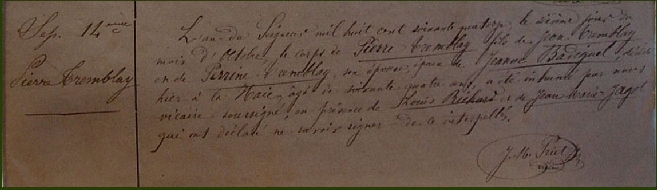 Sep. 14ème
Pierre Tremblay
L'an du Seigneur mil huit cent soixante quatorze, le sixième jour du
mois d'Octobre, le corps de Pierre Tremblay, fils de Jean Tremblay
et de Perrine Tremblay, son épouse, époux de Jeanne, décédé
hier à la Haie, âgé de soixante-quatre ans, a été inhumé par nous
vicaire soussigné, en présence de Louis Bechard et de Jean Marie Jagot
qui ont déclaré ne savoir signer de ce interpellés.
J. M.